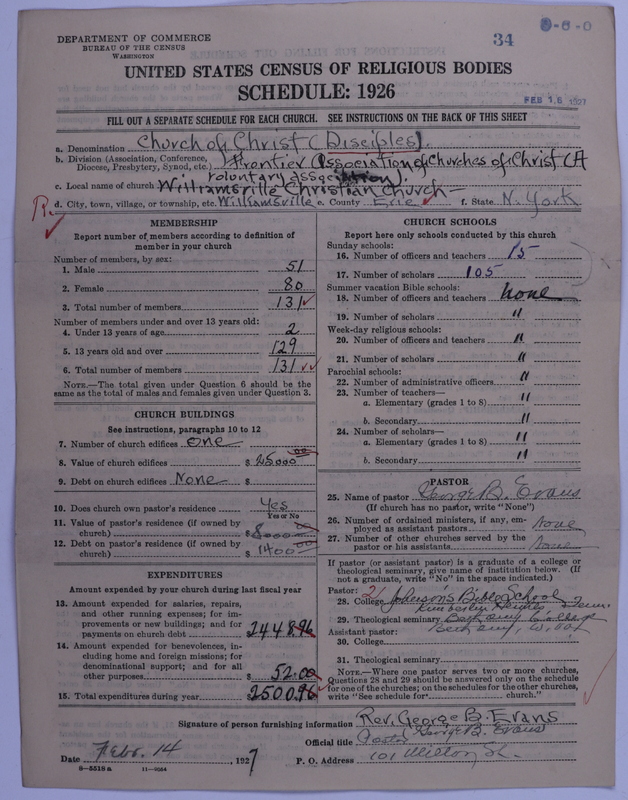 DEPARTMENT OF COMMERCE
BUREAU OF THE CENSUS
WASHINGTON
34
UNITED STATES CENSUS OF RELIGIOUS BODIES
SCHEDULE: 1926
FEB 16 1927
FILL OUT A SEPARATE SCHEDULE FOR EACH CHURCH. SEE INSTRUCTIONS ON THE BACK OF THIS SHEET
a. Denomination Church of Christ (Disciples).
b. Division (Association, Conference, Diocese, Presbytery, Synod, etc.) Frontier Association of Churches of Christ (A
voluntary association).
c. Local name of church Williamsville Christian Church
d. City, town, village, or township, etc. Williamsville e. County Erie f. State N. York
MEMBERSHIP
Report number of members according to definition of
member in your church
Number of members, by sex:
1. Male 51
2. Female 80
3. Total number of members 131
Number of members under and over 13 years old:
4. Under 13 years of age 2
5. 13 years old and over 129
6. Total number of members 131
NOTE.—The total given under Question 6 should be the
same as the total of males and females given under Question 3.
CHURCH BUILDINGS
See instructions, paragraphs 10 to 12
7. Number of church edifices one
8. Value of church edifices $ 25000 00
9. Debt on church edifices None $
10. Does church own pastor's residence? Yes
Yes or No
11. Value of pastor's residence (if owned by
church) $ 8000 00
12. Debt on pastor's residence (if owned by
church) $ 1400 00
EXPENDITURES
Amount expended by your church during last fiscal year
13. Amount expended for salaries, repairs,
and other running expenses; for im-
provements or new buildings; and for
payments on church debt $ 2448.96
14. Amount expended for benevolences, in-
cluding home and foreign missions; for
denominational support; and for all
other purposes $ 52.00
15. Total expenditures during year $ 2500.96
CHURCH SCHOOLS
Report here only schools conducted by this church
Sunday schools:
16. Number of officers and teachers 15
17. Number of scholars 105
Summer vacation Bible schools:
18. Number of officers and teachers None
19. Number of scholars "
Week-day religious schools:
20. Number of officers and teachers "
21. Number of scholars "
Parochial schools:
22. Number of administrative officers "
23. Number of teachers—
a. Elementary (grades 1 to 8) "
b. Secondary "
24. Number of scholars—
a. Elementary (grades 1 to 8) "
b. Secondary "
PASTOR
25. Name of pastor George B. Evans
(If church has no pastor, write "None")
26. Number of ordained ministers, if any, em-
ployed as assistant pastors None
27. Number of other churches served by the
pastor or his assistants None
If pastor (or assistant pastor) is a graduate of a college or
theological seminary, give name of institution below. (If
not a graduate, write "No" in the space indicated.)
Pastor:
28. College Johnson's Bible School
Kimberlin Heights Tenn.
29. Theological seminary Bethany College
Bethany, W. Va.
Assistant pastor:
30. College
31. Theological seminary
NOTE.—Where one pastor serves two or more churches,
Questions 28 and 29 should be answered only on the schedule
for one of the churches; on the schedules for the other churches,
write "See schedule for church."
Signature of person furnishing information Rev. George B. Evans
Official title Pastor George B. Evans
Date Febr. 14, 1927 P. O. Address 101 Milton St.
8—5518 a 11—9064